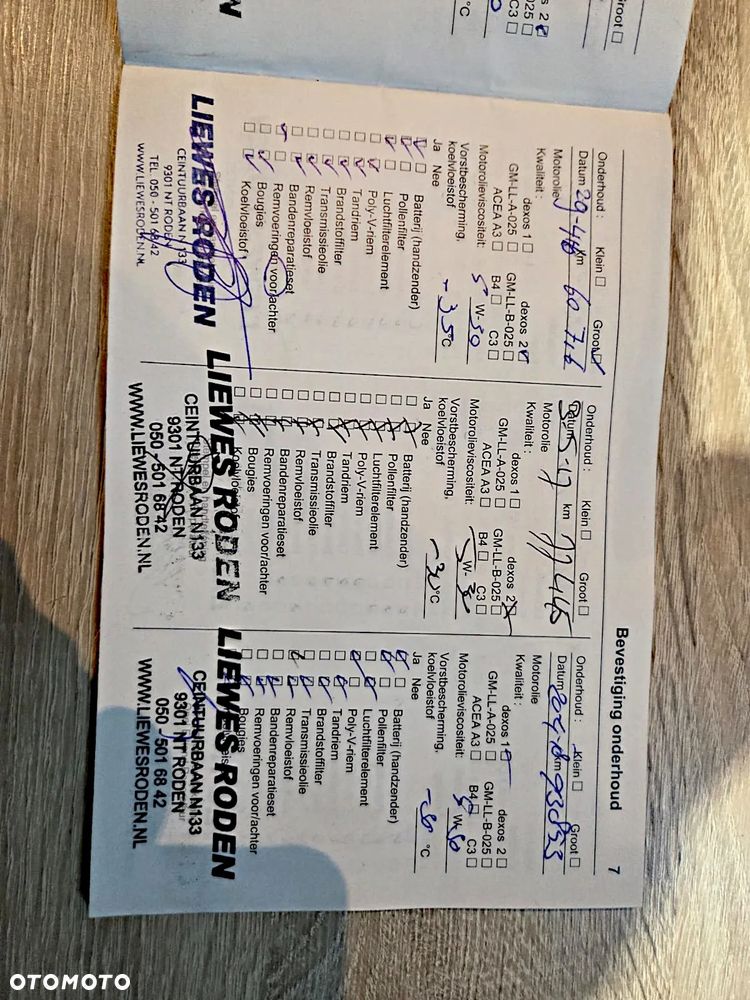 Bevestiging onderhoud
7
Onderhoud : Klein Groot
Datum 29-4-16 km 60 746
Motorolie
Kwaliteit :
dexos 1 dexos 2
GM-LL-A-025 GM-LL-B-025
ACEA A3 B4 C3
Motorolieviscositeit: 5 W- 30
Vorstbescherming, koelvloeistof - 35 °C
Ja Nee
Batterij (handzender)
Pollenfilter
Luchtfilterelement
Poly-V-riem
Tandriem
Brandstoffilter
Transmissieolie
Remvloeistof
Bandenreparatieset
Remvoeringen voor/achter
Bougies
Koelvloeistof
LIEWES RODEN
CEINTUURBAAN N133
9301 NT RODEN
TEL. 050 - 501 6842
WWW.LIEWESRODEN.NL
Onderhoud : Klein Groot
Datum km 77 445
Motorolie
Kwaliteit :
dexos 1 dexos 2
GM-LL-A-025 GM-LL-B-025
ACEA A3 B4 C3
Motorolieviscositeit: 5 W- 30
Vorstbescherming, koelvloeistof - 30 °C
Ja Nee
Batterij (handzender)
Pollenfilter
Luchtfilterelement
Poly-V-riem
Tandriem
Brandstoffilter
Transmissieolie
Remvloeistof
Bandenreparatieset
Remvoeringen voor/achter
Bougies
Koelvloeistof
LIEWES RODEN
CEINTUURBAAN N133
9301 NT RODEN
050 - 501 68 42
WWW.LIEWESRODEN.NL
Onderhoud : Klein Groot
Datum km
Motorolie
Kwaliteit :
dexos 1 dexos 2
GM-LL-A-025 GM-LL-B-025
ACEA A3 B4 C3
Motorolieviscositeit: W-30
Vorstbescherming, koelvloeistof - 30 °C
Ja Nee
Batterij (handzender)
Pollenfilter
Luchtfilterelement
Poly-V-riem
Tandriem
Brandstoffilter
Transmissieolie
Remvloeistof
Bandenreparatieset
Remvoeringen voor/achter
Bougies
LIEWES RODEN
CEINTUURBAAN N133
9301 NT RODEN
050 - 501 68 42
WWW.LIEWESRODEN.NL
OTOMOTO